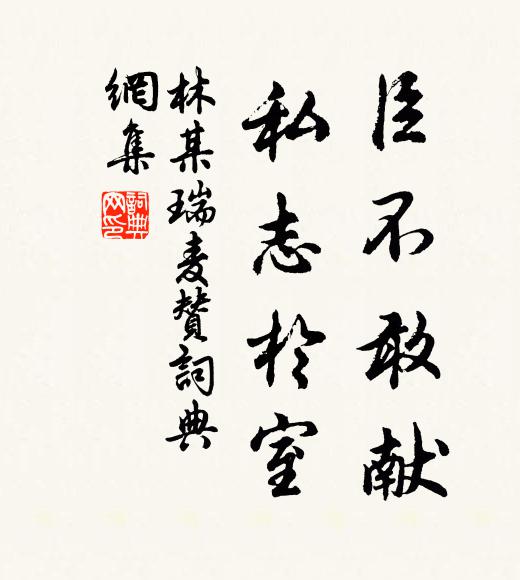 臣不敢献
私志於室
林某瑞麦赞詞典
網集
詞典
网印